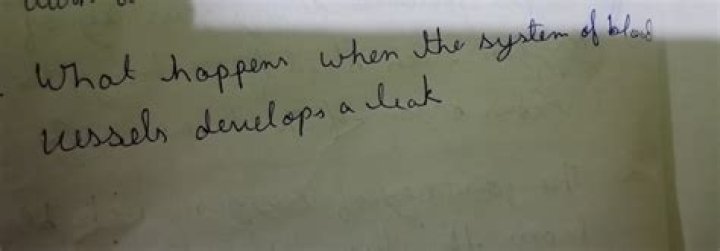 What happens when the system of blood
vessels develops a leak